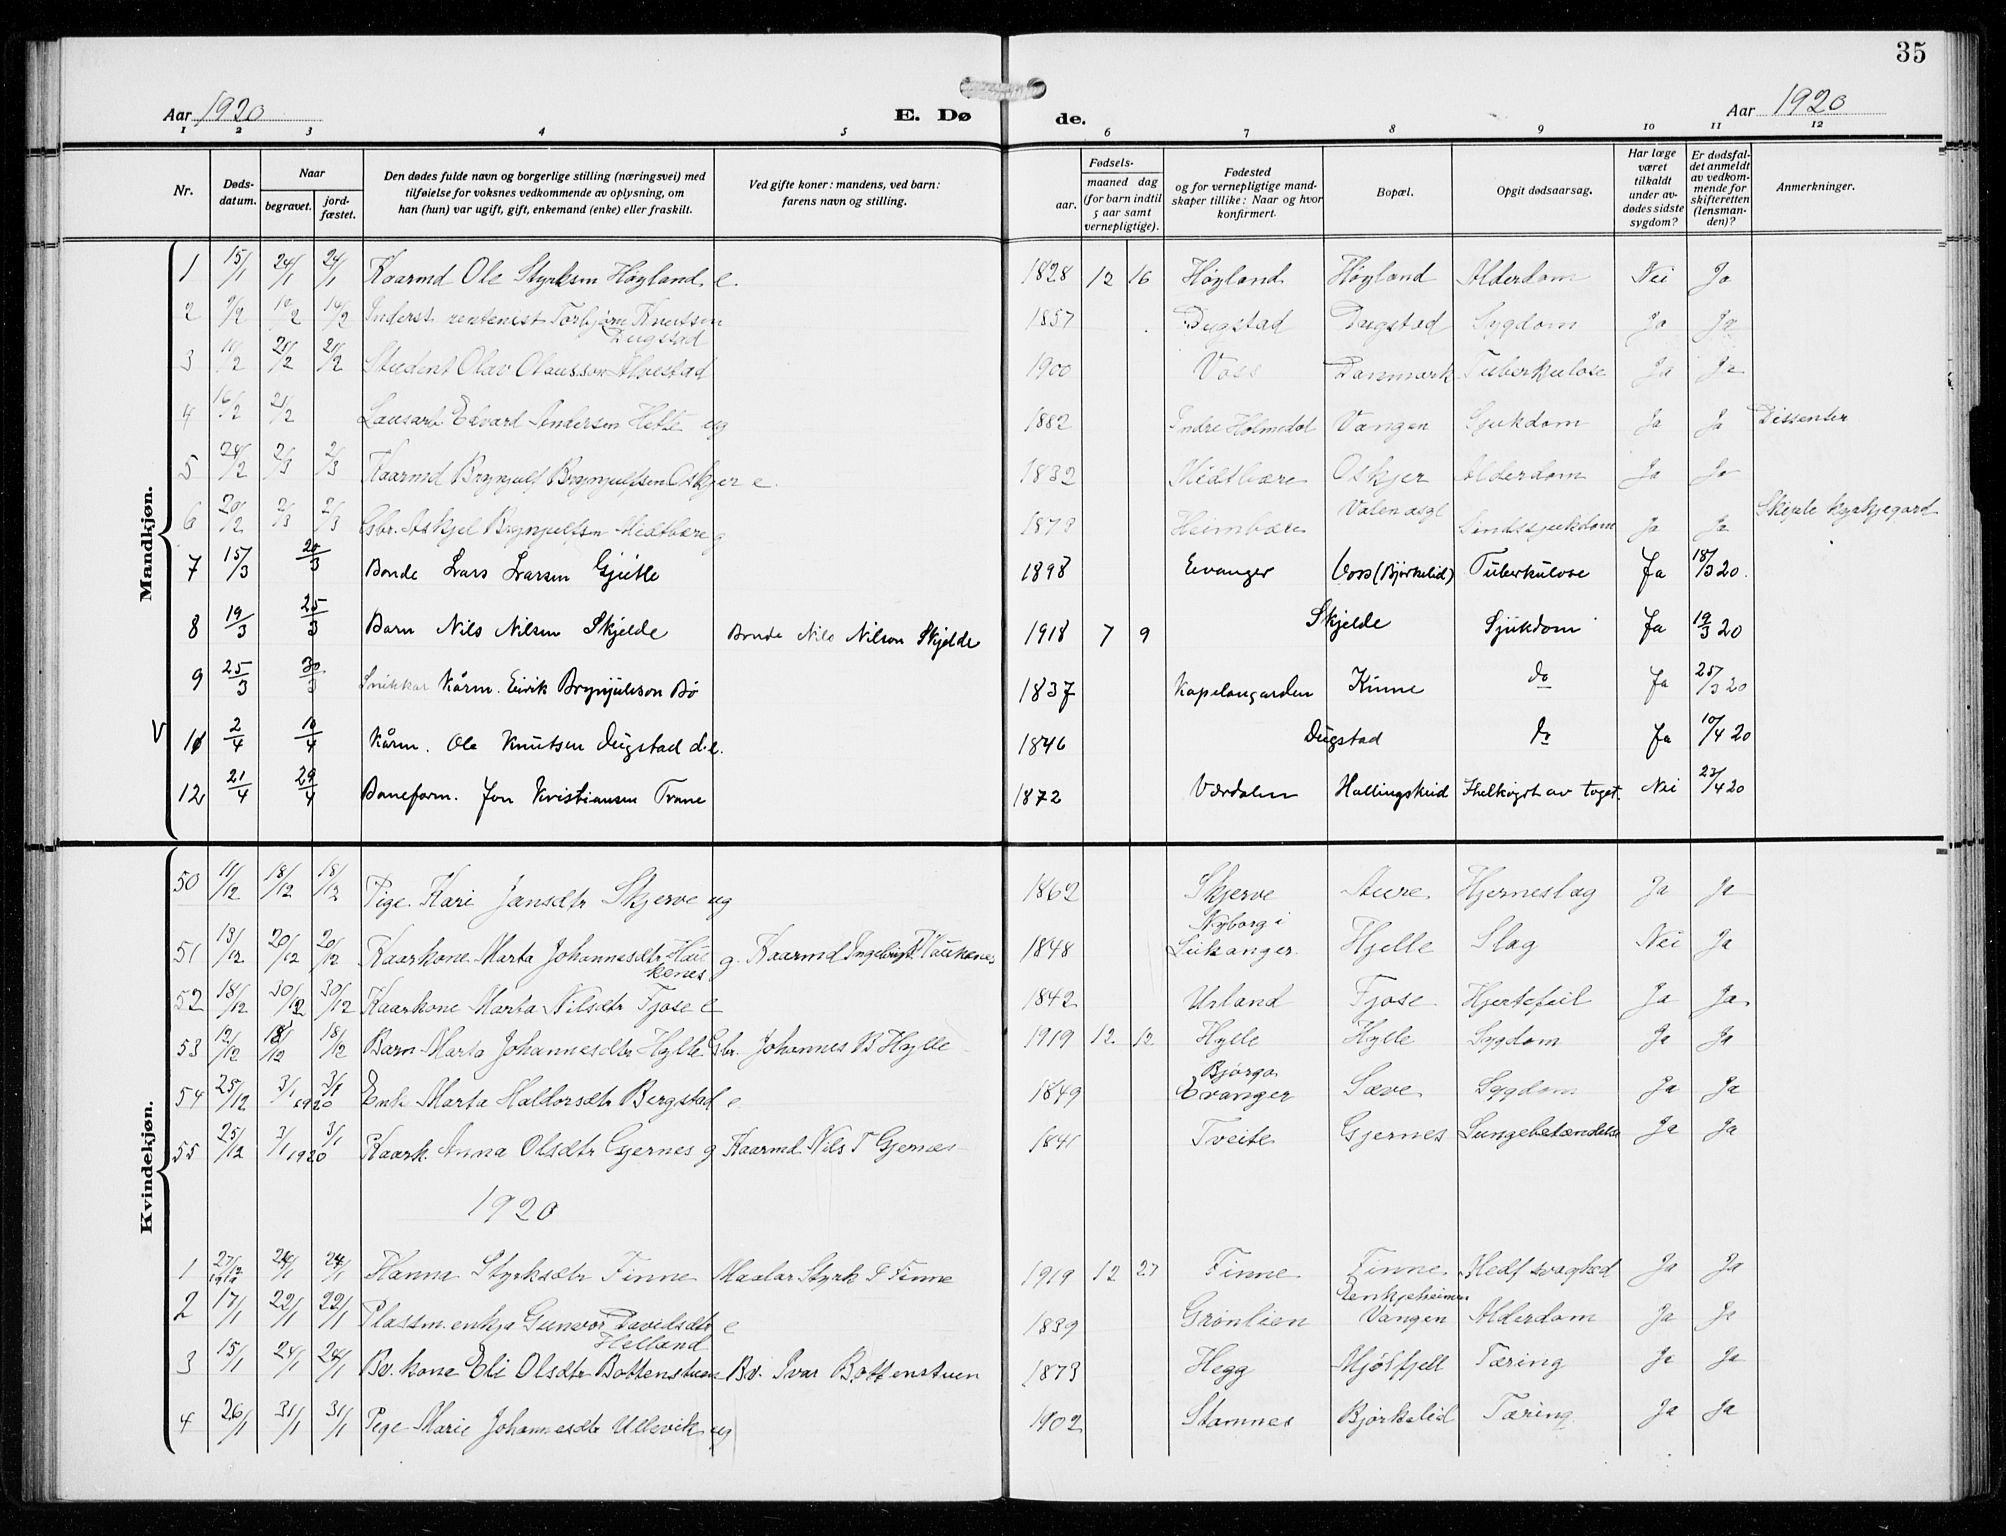 35
Aar 1920
E. Dø
de.
Aar 1920
1 2 3 4 5 6 7 8 9 10 11 12
Nr.
Døds-
datum.
Naar
begravet.
jord-
fæstet.
Den dødes fulde navn og borgerlige stilling (næringsvei) med
tilføielse for voksnes vedkommende av oplysning, om
han (hun) var ugift, gift, enkemand (enke) eller fraskilt.
Ved gifte koner: mandens, ved barn:
farens navn og stilling.
Fødsels-
aar.
maaned dag
(for barn indtil
5 aar samt
vernepligtige).
Fødested
og for vernepligtige mand-
skaper tillike: Naar og hvor
konfirmert.
Bopæl.
Opgit dødsaarsag.
Har læge
været
tilkaldt
under av-
dødes sidste
sygdom?
Er dødsfal-
det anmeldt
av vedkom-
mende for
skifteretten
(lensman-
den)?
Anmerkninger.
Mandkjøn.
1 15/1 24/1 24/1 Kaarmd Ole Styrksen Høyland e. 1828 12 16 Høyland Høyland Alderdom Nei Ja
2 9/2 14/2 Inderst rentenist Torbjørn Knutsen Dugstad 1857 Dugstad Dugstad Sygdom Ja Ja
3 11/2 21/2 21/2 Student Olav Olausson Alvestad 1900 Voss Danmark Tuberkulose Ja Ja
4 16/2 21/2 Edvard Andersen Hette ug 1882 Indre Holmedal Vangen Sjukdom Ja Ja Dissenter
5 24/2 2/3 2/3 Kaarmd Brynjulf Brynjulfsen Oskjer e. 1832 Midtbære Oskjer Alderdom Ja Ja
6 20/2 2/3 2/3 Gbr. Askjel Brynjulfsen Midtbære g 1878 Heimbære Valen asyl Sindssjukdom Ja Ja Skjple kyrkjegard
7 15/3 20/3 Bonde Lars Larsen Gjitle 1898 Evanger Voss (Bjørkelid) Tuberkulose Ja 18/3 20.
8 19/3 25/3 Barn Nils Nilsen Skjelde Bonde Nils Nilson Skjelde 1918 7 9 Skjelde Sjukdom Ja 19/3 20
9 25/3 30/3 Snikkar Kårm. Eirik Brynjulson Bø 1837 Kapelangarden Kinne do Ja 25/3 20
V 11 2/4 10/4 Kårm. Ole Knutsen Dugstad d.e. 1846 Dugstad do Ja 10/4 20
12 21/4 29/4 Baneform. Jon Kristiansen Trane 1872 Værdalen Hallingskeid Ihelkøyrt av toget. Nei 23/4 20
Kvindekjøn.
50 11/12 18/12 18/12 Pige Kari Jansdtr Skjerve ug 1862 Skjerve Aure Hjerneslag Ja Ja
51 13/12 20/12 20/12 Kaarkone Marta Johannesdtr Haukenes g. Kaarmd Ingebrigt Haukenes 1848 Nyborg i Leikanger Hjelle Slag Nei Ja
52 18/12 30/12 30/12 Kaarkone Marta Nilsdtr Fjose e 1842 Urland Fjose Hjertefeil Ja Ja
53 12/12 18/12 18/12 Barn Marta Johannesdtr Hylle Gbr. Johannes B Hylle 1919 12 12 Hylle Hylle Sygdom Ja Ja
54 25/12 3/1 1920 3/1 Enk Marta Haldorsdtr Bergstad e 1849 Bjørgo Evanger Sæve Sygdom Ja Ja
55 25/12 3/1 1920 3/1 Kaark. Anna Olsdtr Gjernes g Kaarmd Nils T Gjernes 1841 Tveite Gjernes Lungebetændelse Ja Ja
1920
1 27/12 1919 24/1 24/1 Hanna Styrksdtr Finne Maalar Styrk T Finne 1919 12 27 Finne Finne Medf svaghed Ja Ja
2 17/1 22/1 22/1 Plassm.enkja Gunvor Davidsdtr Helland e 1839 Grønlien Enkjeheimen Vangen Alderdom Ja Ja
3 15/1 24/1 24/1 Bv. kona Eli Olsdtr Bottenstuen Bv. Ivar Bottenstuen 1873 Hegg Mjølfjell Tæring Ja Ja
4 26/1 31/1 31/1 Pige Marie Johannesdtr Ullesvik ug 1902 Stamnes Bjørkelid Tæring Ja Ja